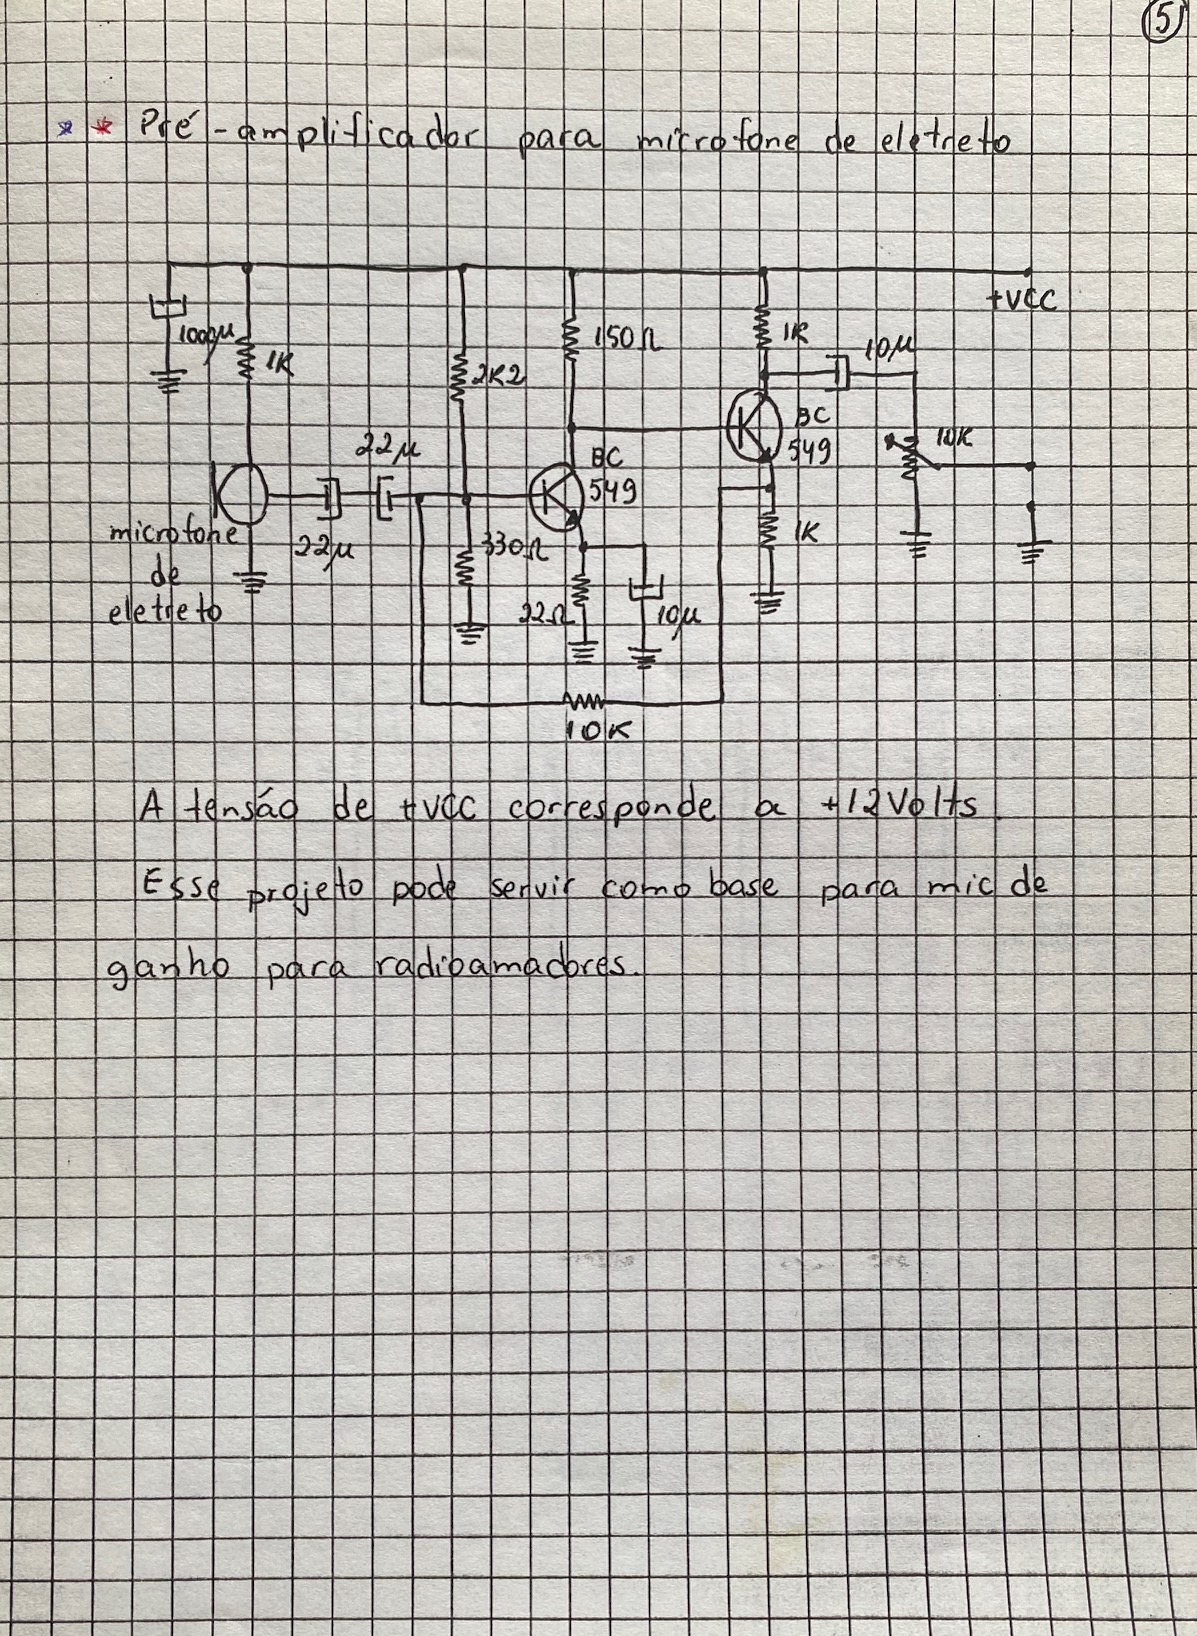 5
** Pré-amplificador para microfone de eletreto
+VCC
1000µ
1K
2K2
150Ω
1K
10µ
BC
549
10K
22µ
BC
549
microfone
de
eletreto
22µ
330Ω
22Ω
10µ
1K
10K
A tensão de +VCC corresponde a +12Volts.
Esse projeto pode servir como base para mic de
ganho para radioamadores.